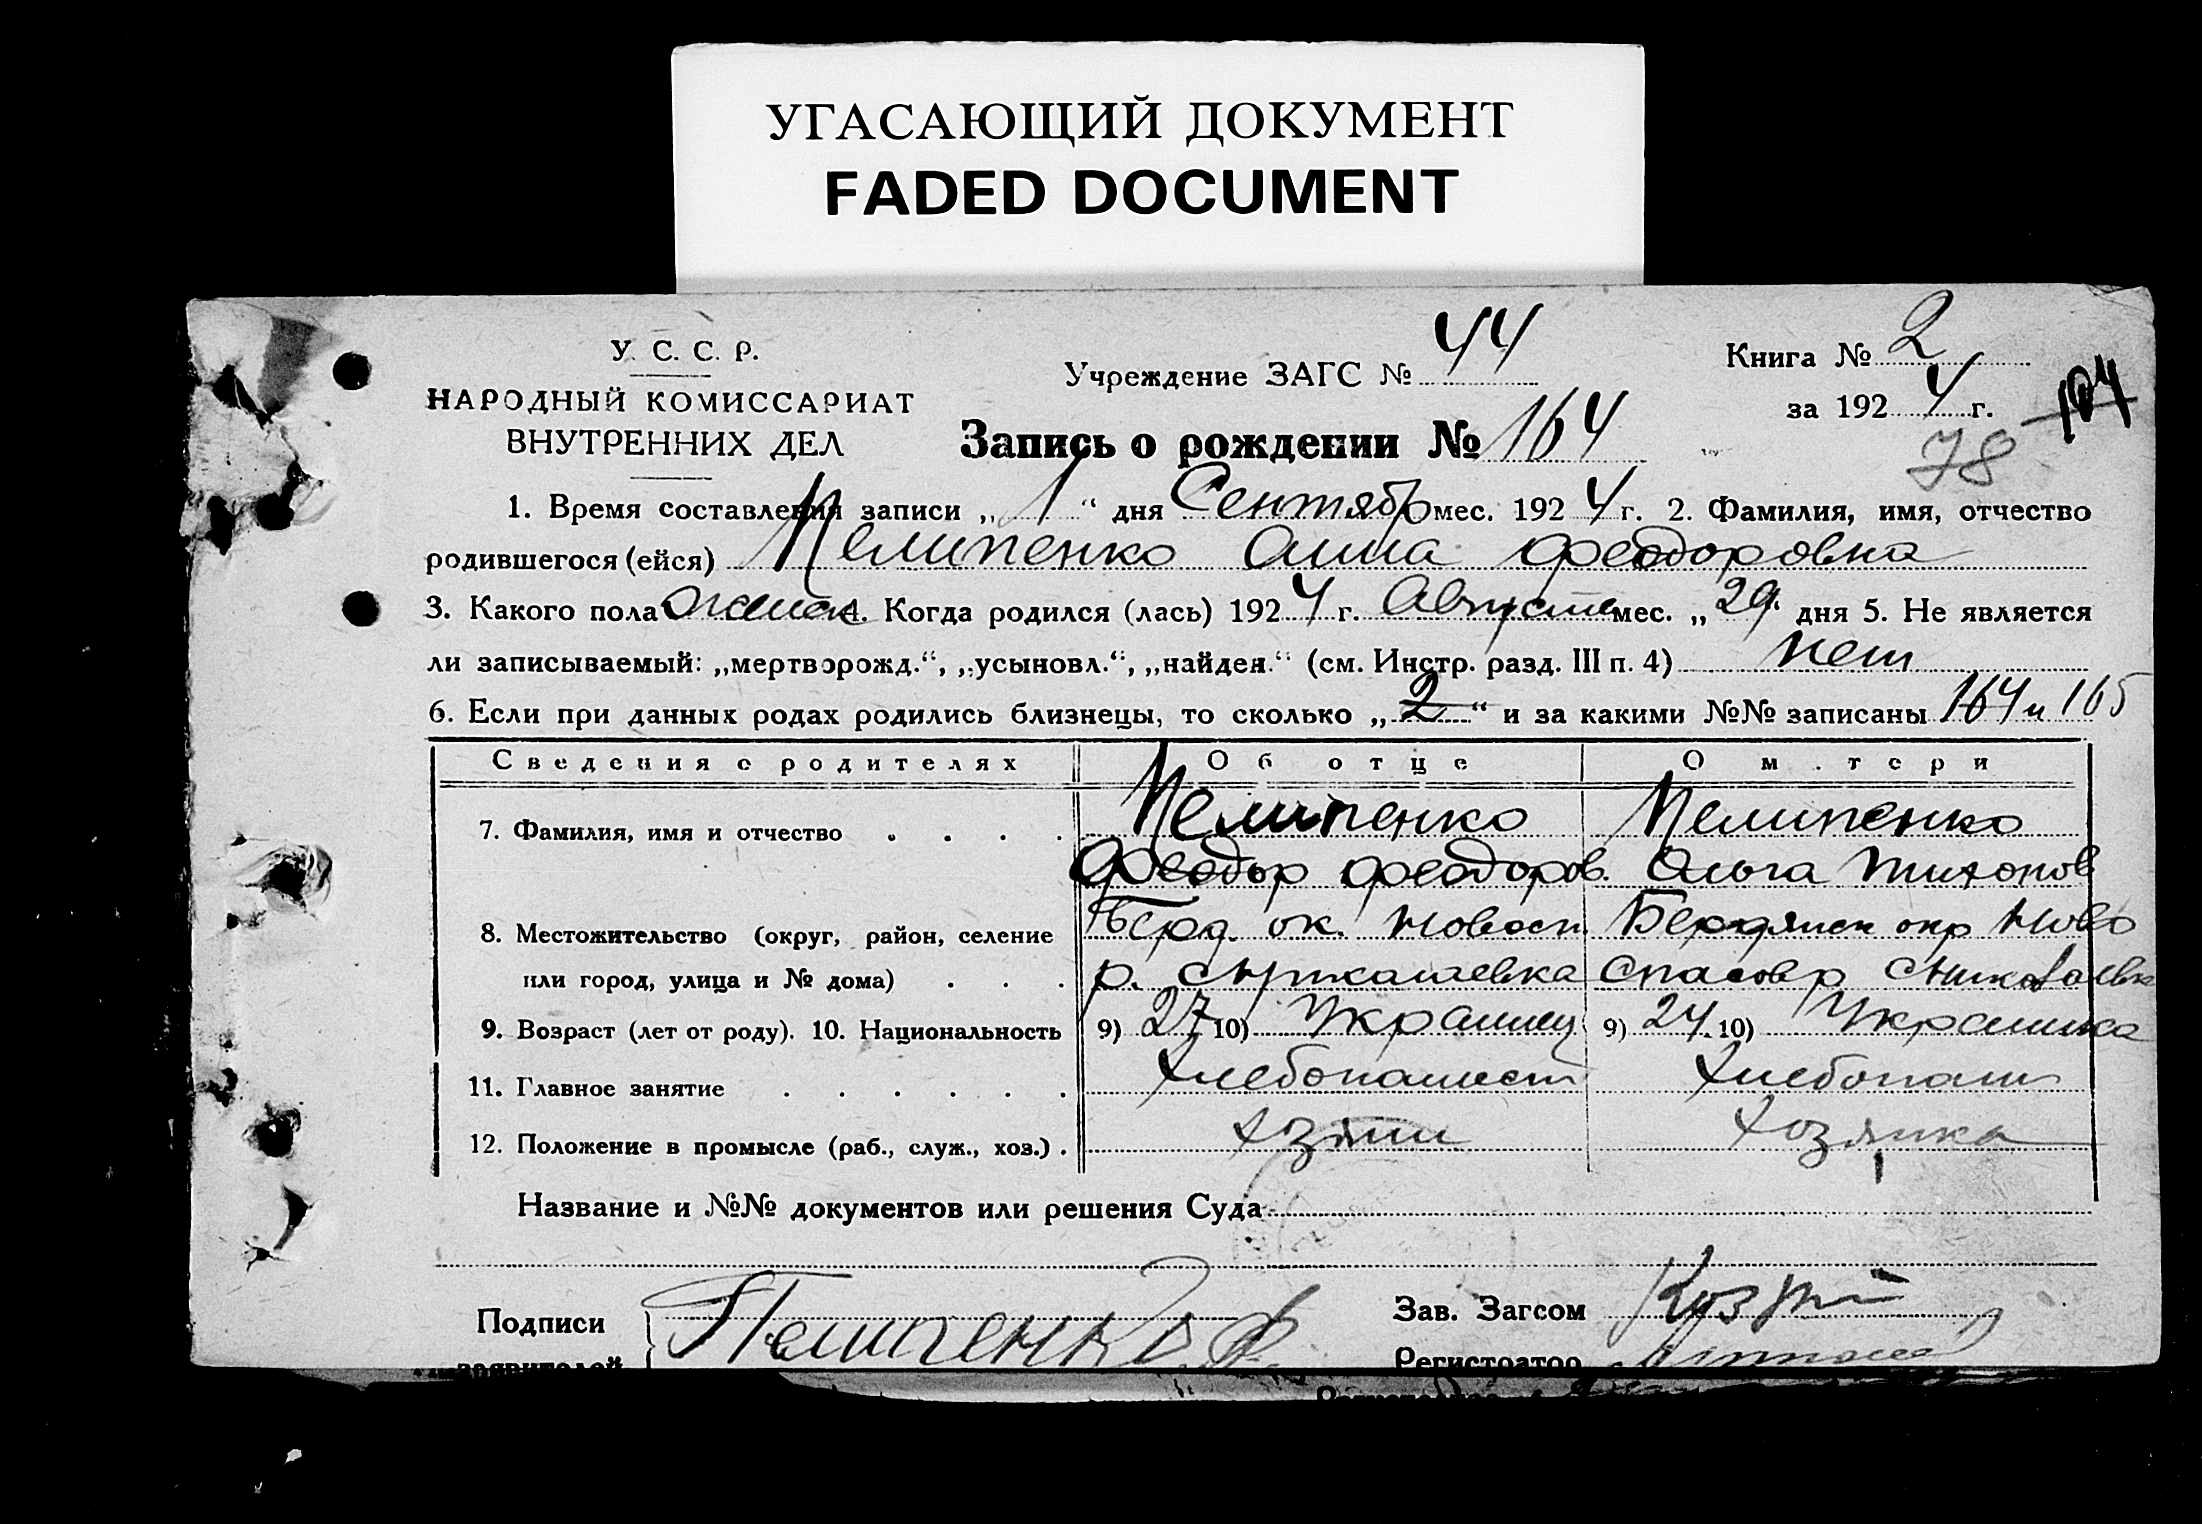 УГАСАЮЩИЙ ДОКУМЕНТ
FADED DOCUMENT
У. С. С. Р.
НАРОДНЫЙ КОМИССАРИАТ
ВНУТРЕННИХ ДЕЛ
Учреждение ЗАГС № 44
Книга № 2
за 1924 г.
104
78
Запись о рождении № 164
1. Время составления записи „1“ дня Сентябр мес. 1924 г. 2. Фамилия, имя, отчество
родившегося (ейся) Пелипенко Анна Феодоровна
3. Какого пола женск 4. Когда родился (лась) 1924 г. Августа мес. „29“ дня 5. Не является
ли записываемый: „мертворожд.“, „усыновл.“, „найден.“ (см. Инстр. разд. III п. 4) нет
6. Если при данных родах родились близнецы, то сколько „2“ и за какими №№ записаны 164 и 165
Сведения о родителях Об отце О матери
7. Фамилия, имя и отчество Пелипенко Пелипенко
Феодор Феодоров. Ольга Тихонов
8. Местожительство (округ, район, селение Берд. ок. Новосп. Бердянск окр Ново
или город, улица и № дома) р. Спасов р
9. Возраст (лет от роду). 10. Национальность 9) 27 10) Украинец 9) 24 10) Украинка
11. Главное занятие Хлебопашест Хлебопаш
12. Положение в промысле (раб., служ., хоз.) хозяин хозяйка
Название и №№ документов или решения Суда
Подписи Пелипенко Ф Зав. Загсом
заявителей Регистратор